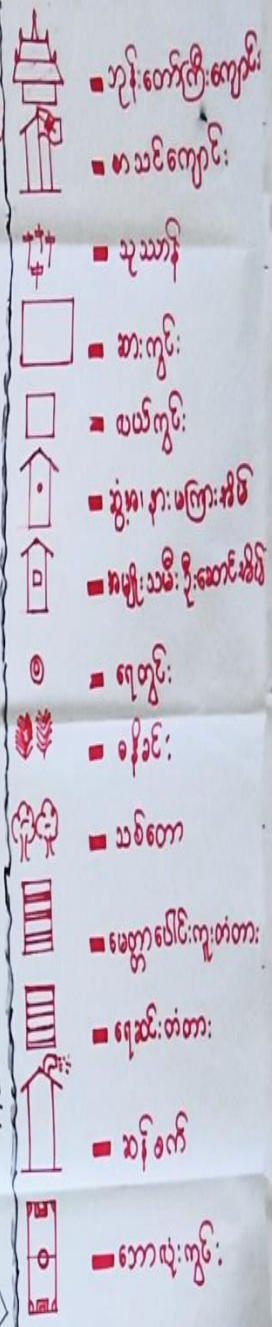 = ဘုန်းတော်ကြီးကျောင်း
= စာသင်ကျောင်း
= သုဿာန်
= ဆားကွင်း
= လယ်ကွင်း
= ဆွံ့အ၊ နားမကြားအိမ်
= အမျိုးသမီးဦးဆောင်အိမ်
= ရေတွင်း
= ဓနိခင်း
= သစ်တော
= မေတ္တာပေါင်းကူးတံတား
= ရေဆင်းတံတား
= ဆန်စက်
= ဘောလုံးကွင်း